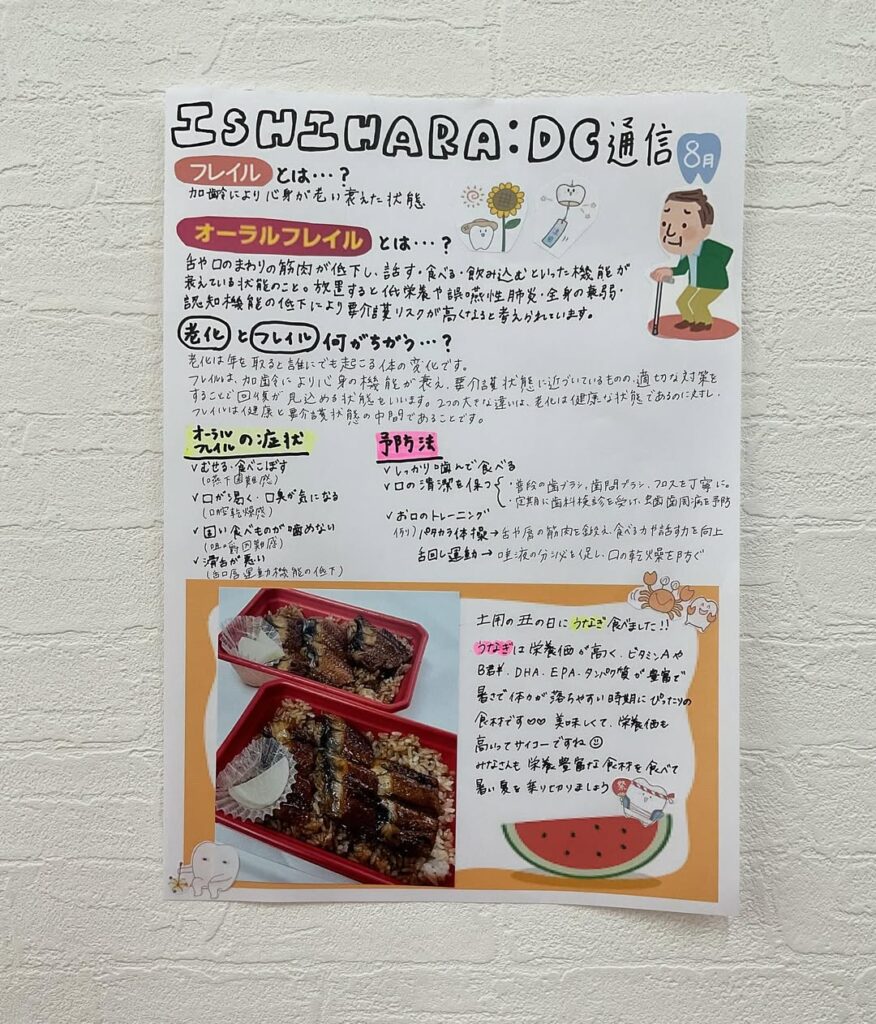 ISHIHARA:DC通信 8月
フレイル とは…?
加齢により心身が老い衰えた状態
オーラルフレイル とは…?
舌や口のまわりの筋肉が低下し、話す・食べる・飲み込むといった機能が
衰えている状態のこと。放置すると低栄養や誤嚥性肺炎・全身の衰弱・
認知機能の低下により要介護リスクが高くなると考えられています。
老化とフレイル何がちがう…?
老化は年を取ると誰にでも起こる体の変化です。
フレイルは、加齢により心身の機能が衰え、要介護状態に近づいているものの、適切な対策を
することで回復が見込める状態をいいます。2つの大きな違いは、老化は健康な状態であるのに対し、
フレイルは健康と要介護状態の中間であることです。
オーラルフレイルの症状
✓むせる・食べこぼす
(嚥下困難感)
✓口が渇く・口臭が気になる
(口腔乾燥感)
✓固い食べものが噛めない
(咀嚼困難感)
✓滑舌が悪い
(舌口唇運動機能の低下)
予防法
✓しっかり噛んで食べる
✓口の清潔を保つ
・普段の歯ブラシ、歯間ブラシ、フロスを丁寧に。
・定期に歯科検診を受け、虫歯歯周病を予防
✓お口のトレーニング
(例)パタカラ体操→舌や唇の筋肉を鍛え、食べる力や話す力を向上
舌回し運動→唾液の分泌を促し、口の乾燥を防ぐ
土用の丑の日にうなぎ食べました!!
うなぎは栄養価が高く、ビタミンAや
B群、DHA、EPA、タンパク質が豊富で
暑さで体力が落ちやすい時期にぴったりの
食材です♡♡ 美味しくて、栄養価も
高いってサイコーですね☺
みなさんも栄養豊富な食材を食べて
暑い夏を乗り切りましょう
祭